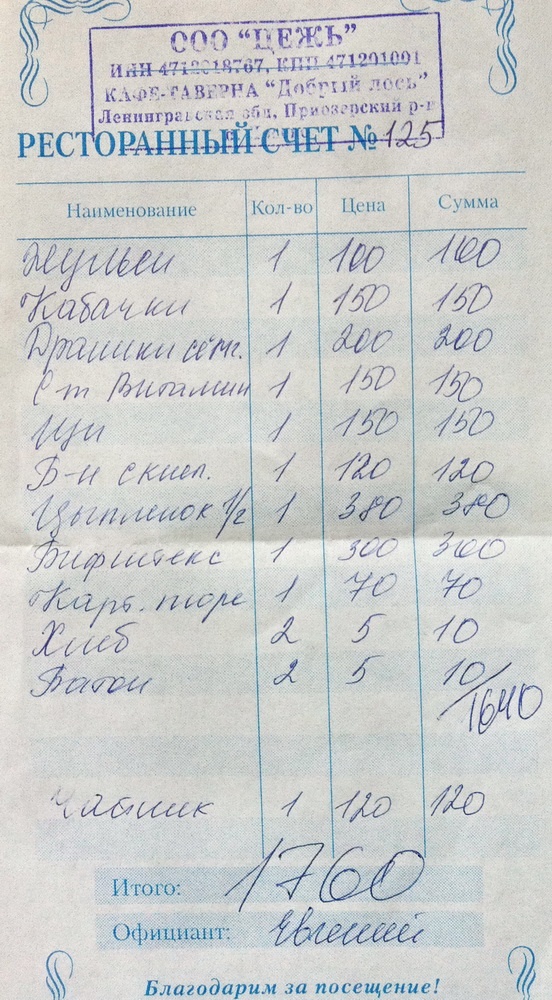 ООО "ЦЕЖЬ"
ИНН 4712018767, КПП 471201001
КАФЕ-ТАВЕРНА "Добрый лось"
Ленинградская обл, Приозерский р-н
РЕСТОРАННЫЙ СЧЕТ № 125
Наименование Кол-во Цена Сумма
Жульен 1 100 100
Кабачки 1 150 150
Драники сёмг. 1 200 200
С-т Витамин 1 150 150
Щи 1 150 150
Б-н с кисл. 1 120 120
Цыпленок 1/2 1 380 380
Бифштекс 1 300 300
Карт. пюре 1 70 70
Хлеб 2 5 10
Батон 2 5 10
1640
Чайник 1 120 120
Итого: 1760
Официант: Евгений
Благодарим за посещение!